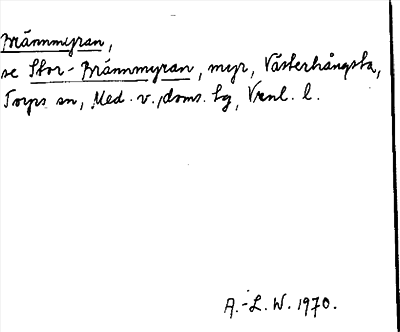 Brännmyran,
se Stor-Brännmyran, myr, Västerhångsta,
Torps sn, Med. v. doms. tg, Vrnl. l.
A.-L. W. 1970.